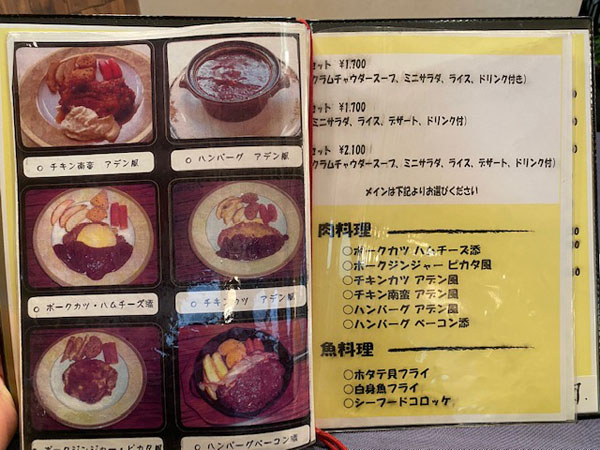 ○ チキン南蛮 アデン風
○ ハンバーグ アデン風
○ ポークカツ・ハムチーズ添
○ チキンカツ アデン風
○ ポークジンジャー・ピカタ風
○ ハンバーグベーコン添
セット ¥1,700
クラムチャウダースープ、ミニサラダ、ライス、ドリンク付き)
セット ¥1,700
ミニサラダ、ライス、デザート、ドリンク付)
セット ¥2,100
クラムチャウダースープ、ミニサラダ、ライス、デザート、ドリンク付)
メインは下記よりお選びください
肉料理
○ポークカツ ハムチーズ添
○ポークジンジャー ピカタ風
○チキンカツ アデン風
○チキン南蛮 アデン風
○ハンバーグ アデン風
○ハンバーグ ベーコン添
魚料理
○ホタテ貝フライ
○白身魚フライ
○シーフードコロッケ